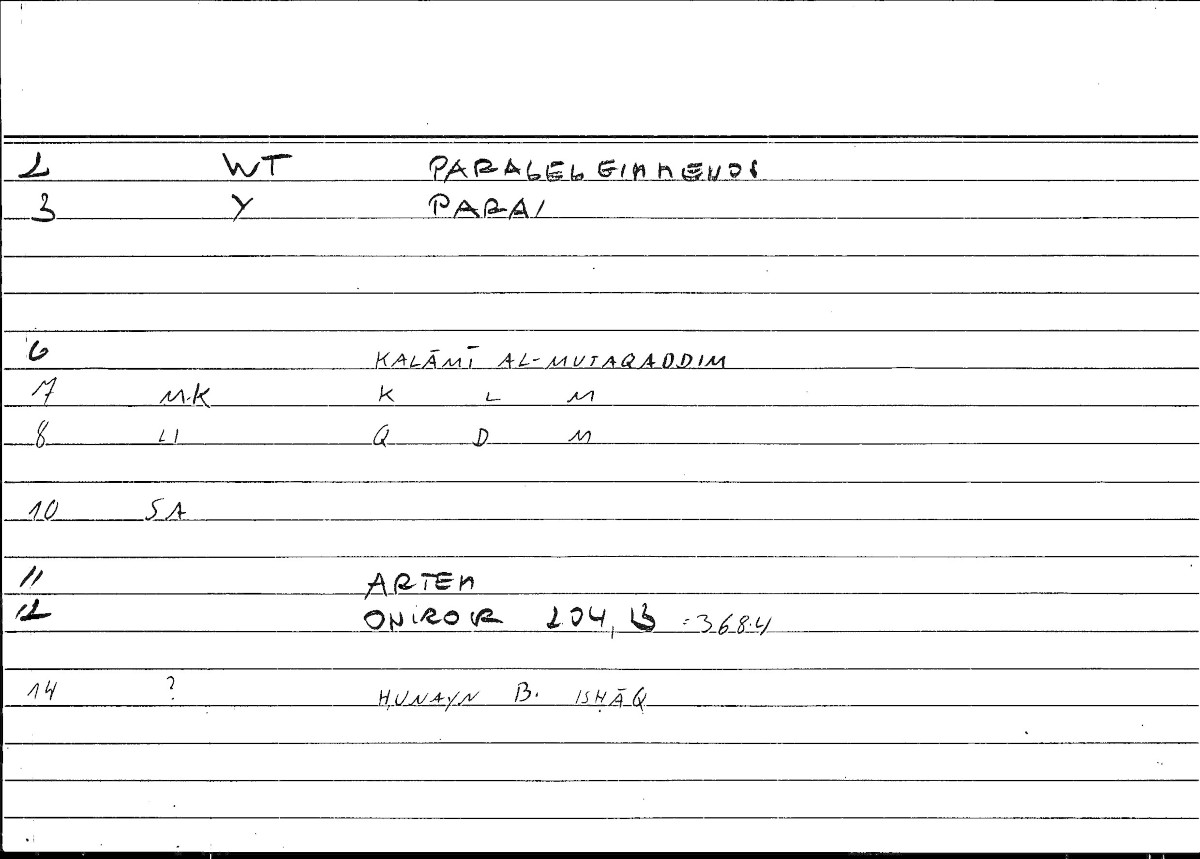 2 WT PARALELEIMMENOS
3 Y PARAI
6 KALĀMĪ AL-MUTAQADDIM
7 MK K L M
8 LI Q D M
10 SA
11 ARTEM
12 ONIROKR 204, 13 =368.4
14 ? ḤUNAYN B. ISḤĀQ